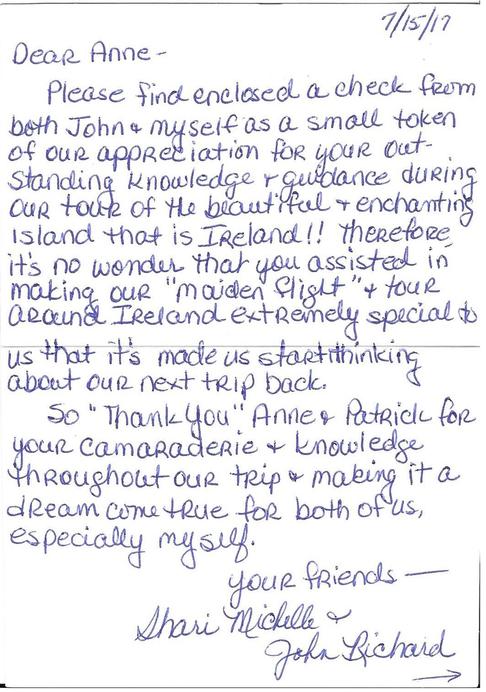 7/15/17
Dear Anne-
Please find enclosed a check from
both John & myself as a small token
of our appreciation for your out-
standing knowledge & guidance during
our tour of the beautiful & enchanting
island that is IRELAND!! Therefore,
it's no wonder that you assisted in
making our "maiden flight" & tour
around IRELAND extremely special to
us that it's made us start thinking
about our next trip back.
So "Thank You" Anne & Patrick for
your camaraderie & knowledge
throughout our trip & making it a
dream come true for both of us,
especially myself.
your friends —
Shari Michelle &
John Richard
→